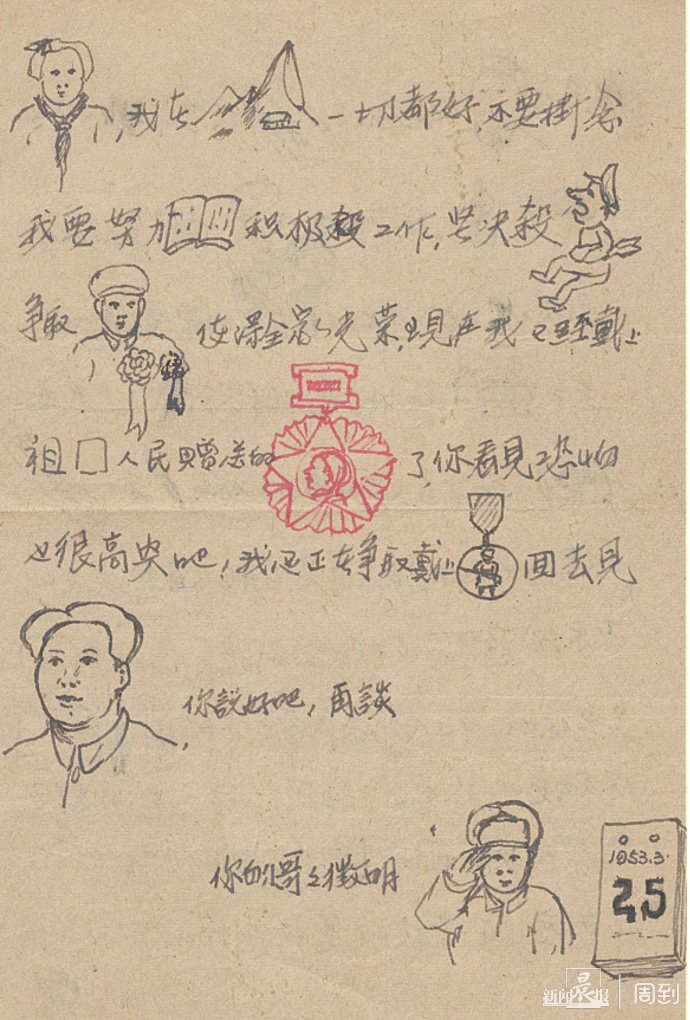 ，我在一切都好，不要掛念
我要努力积极工作，坚决殺
争取使得全家光荣，現在我已經戴上
祖囗人民赠送的了，你看見恐怕
也很高兴吧！我还正在争取戴上回去見
，你說好吧，再談
你的哥々徵明
1953.3.
25
新闻晨报 周到